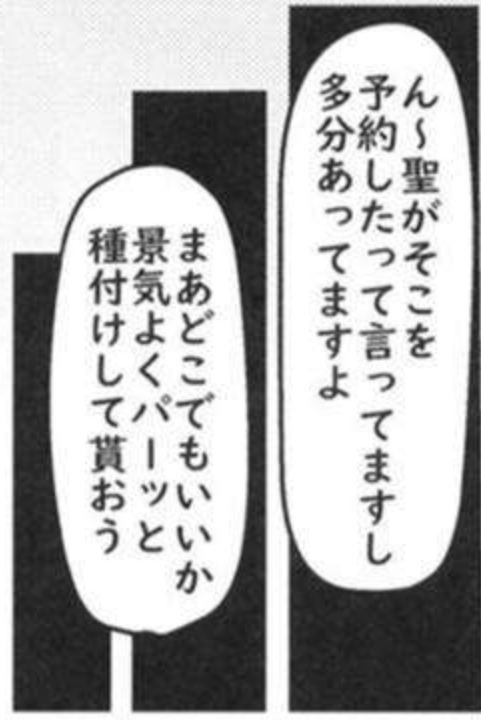 ん～聖がそこを
予約したって言ってますし
多分あってますよ
まあどこでもいいか
景気よくパーッと
種付けして貰おう